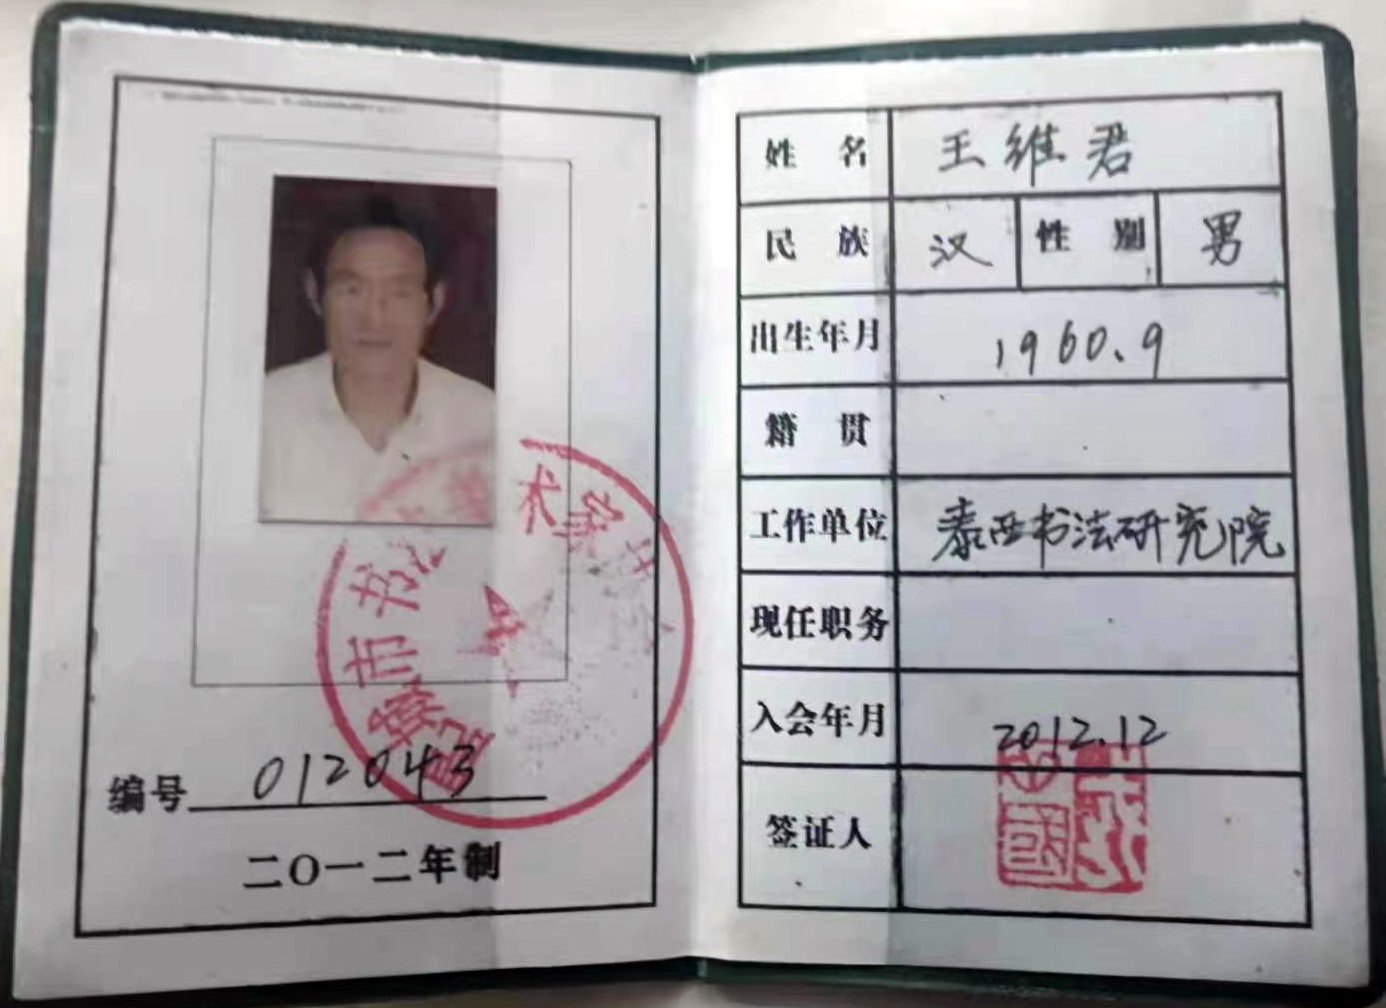 编号 012043
二〇一二年制
肥城市书法艺术家协会
姓名 王维君
民族 汉 性别 男
出生年月 1960.9
籍贯
工作单位 泰西书法研究院
现任职务
入会年月 2012.12
签证人